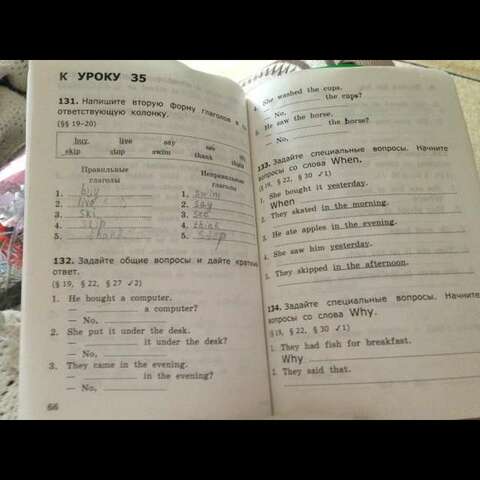 К УРОКУ 35
131. Напишите вторую форму глаголов в
ответствующую колонку.
(§§ 19–20)
buy live say see
skip clap swim thank think
Правильные Неправильные
глаголы глаголы
1. buy 1. swim
2. live 2. say
3. ski 3. see
4. skip 4. think
5. 5.
132. Задайте общие вопросы и дайте краткий
ответ.
(§ 19, § 22, § 27 ✓2)
1. He bought a computer.
— a computer?
— No,
2. She put it under the desk.
— it under the desk?
— No,
3. They came in the evening.
— in the evening?
— No,
66
4. She washed the cups.
— the cups?
— No,
5. He saw the horse.
— the horse?
— No,
133. Задайте специальные вопросы. Начните
вопросы со слова When.
(§ 19, § 22, § 30 ✓1)
1. She bought it yesterday.
When
2. They skated in the morning.
3. He ate apples in the evening.
4. She saw him yesterday.
5. They skipped in the afternoon.
134. Задайте специальные вопросы. Начните
вопросы со слова Why.
(§ 19, § 22, § 30 ✓1)
1. They had fish for breakfast.
Why
2. They said that.